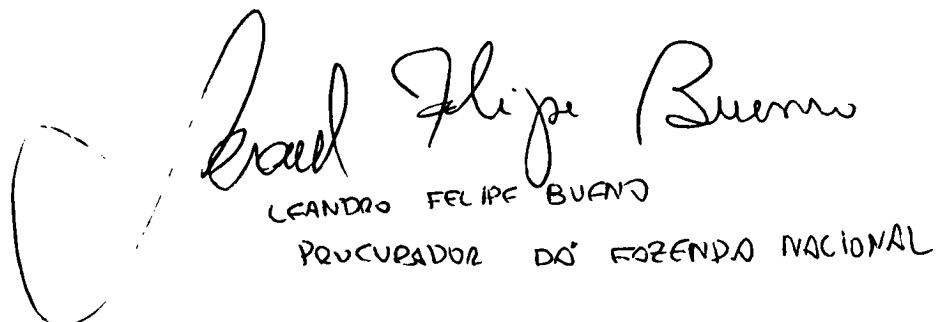 Leand Felipe Bueno
LEANDRO FELIPE BUENO
PROCURADOR DA FAZENDA NACIONAL